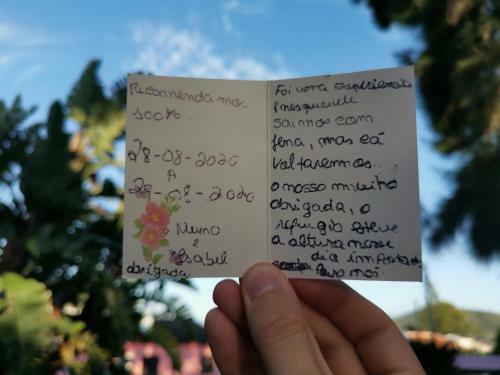 Recomendamos
100%.
28-08-2020
A
29-08-2020
Nuno
e
Isabel
obrigada
Foi uma experiência
inesquecivel
saimos com
pena, mas cá
voltaremos...
o nosso muito
obrigada, o
refugio esteve
a altura nesse
dia importante
para nós.